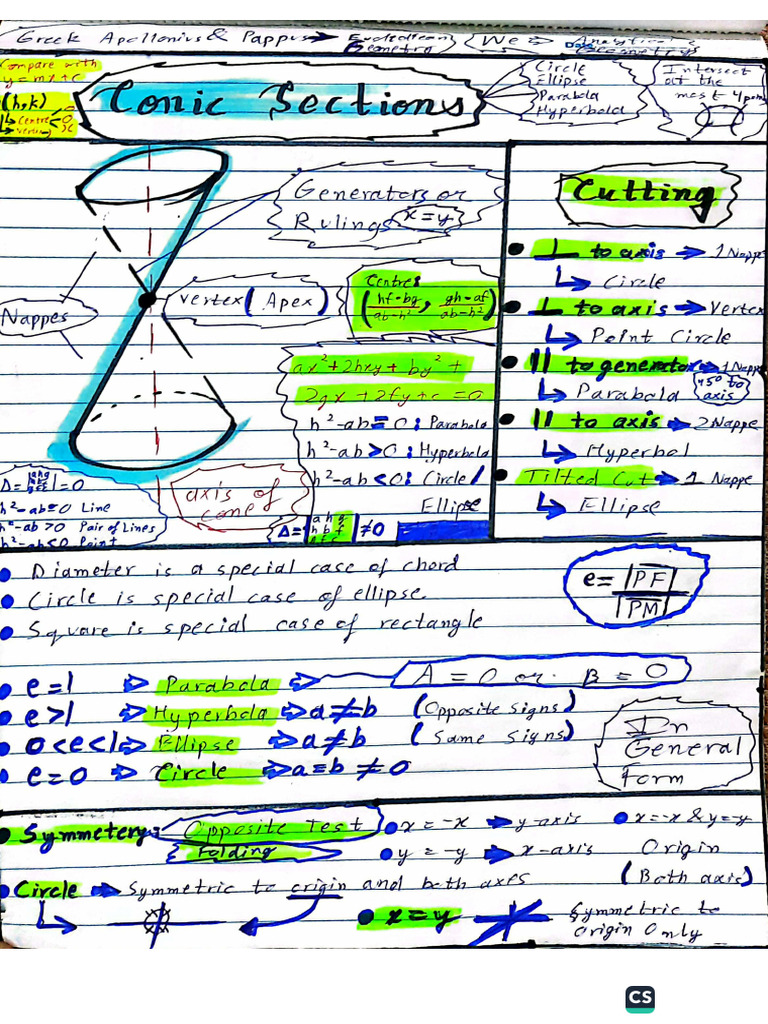 Greek Apollonius & Pappus → Euclidean Geometry
We ⇒ Analytical Geometry
Compare with
y = mx + c
(h, k)
↳ Centre
↳ Vertex
Conic Sections
Circle
Ellipse
Parabola
Hyperbola
Intersect
at the
most 4 points
Generators or
Rulings x = y
Nappes
Vertex (Apex)
Centre:
(hf-bg/ab-h², gh-af/ab-h²)
ax² + 2hxy + by² +
2gx + 2fy + c = 0
h² - ab = 0 : Parabola
h² - ab > 0 : Hyperbola
h² - ab < 0 : Circle /
Ellipse
Δ = |a h g
h b f
g f c| ≠ 0
axis of
cone
Δ = |a h g h b f g f c| = 0
h² - ab = 0 Line
h² - ab > 0 Pair of Lines
h² - ab < 0 Point
Cutting
• ⊥ to axis → 1 Nappe
↳ Circle
• ⊥ to axis → Vertex
↳ Point Circle
• || to generator → 1 Nappe
↳ Parabola
45° to
axis
• || to axis → 2 Nappe
↳ Hyperbol
• Tilted Cut → 1 Nappe
↳ Ellipse
• Diameter is a special case of chord
• Circle is special case of ellipse.
• Square is special case of rectangle
e = |PF| / |PM|
• e = 1 ⇒ Parabola ⇒ A = 0 or B = 0
• e > 1 ⇒ Hyperbola ⇒ a ≠ b (Opposite Signs)
• 0 < e < 1 ⇒ Ellipse ⇒ a ≠ b (Same Signs)
• e = 0 ⇒ Circle ⇒ a = b ≠ 0
In
General
Form
• Symmetery: Opposite Test
Folding
• x = -x → y-axis
• x = -x & y = -y
• y = -y → x-axis
Origin
(Both axis)
• Circle → Symmetric to origin and both axes
• x = y
Symmetric to
origin Only
CS